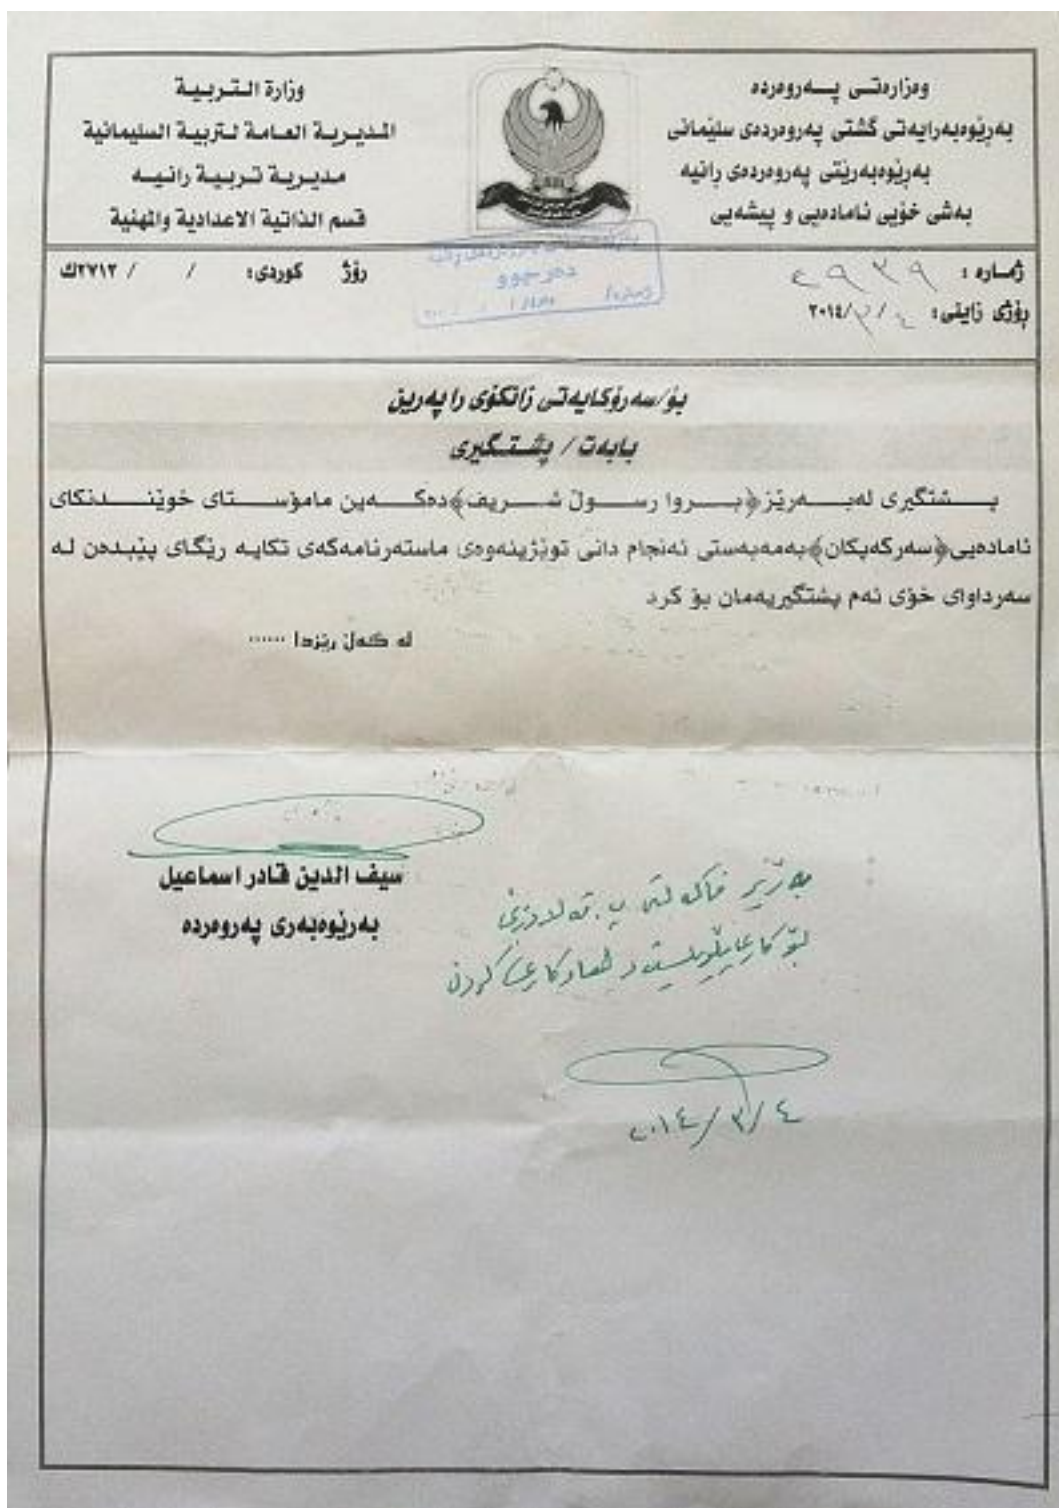 وەزارەتی پەروەردە
بەرێوەبەرایەتی گشتی پەروەردەی سلێمانی
بەرێوەبەرێتی پەروەردەی رانیە
بەشی خۆیی ئامادەیی و پیشەیی
وزارة التربية
المديرية العامة لتربية السليمانية
مديرية تربية رانيه
قسم الذاتية الاعدادية والمهنية
ژمارە : ٤٩٣٩
رۆژی زاینی: ٤ /٣/ ٢٠١٤
رۆژ کوردی: / / ٢٧١٢ك
دەرچوو
بۆ/سەرۆکایەتی زانکۆی راپەرین
بابەت / پشتگیری
پشتگیری لەبەرێز﴿بروا رسول شریف﴾دەکەین مامۆستای خوێندنکای
ئامادەیی﴿سەرکەپکان﴾بەمەبەستی ئەنجام دانی توێژینەوەی ماستەرنامەکەی تکایە رێگای پێبدەن لە
سەرداوای خۆی ئەم پشتگیریەمان بۆ کرد
لە گەڵ رێزدا ......
سيف الدين قادر اسماعيل
بەرێوەبەری پەروەردە
٢٠١٤/٣/٤